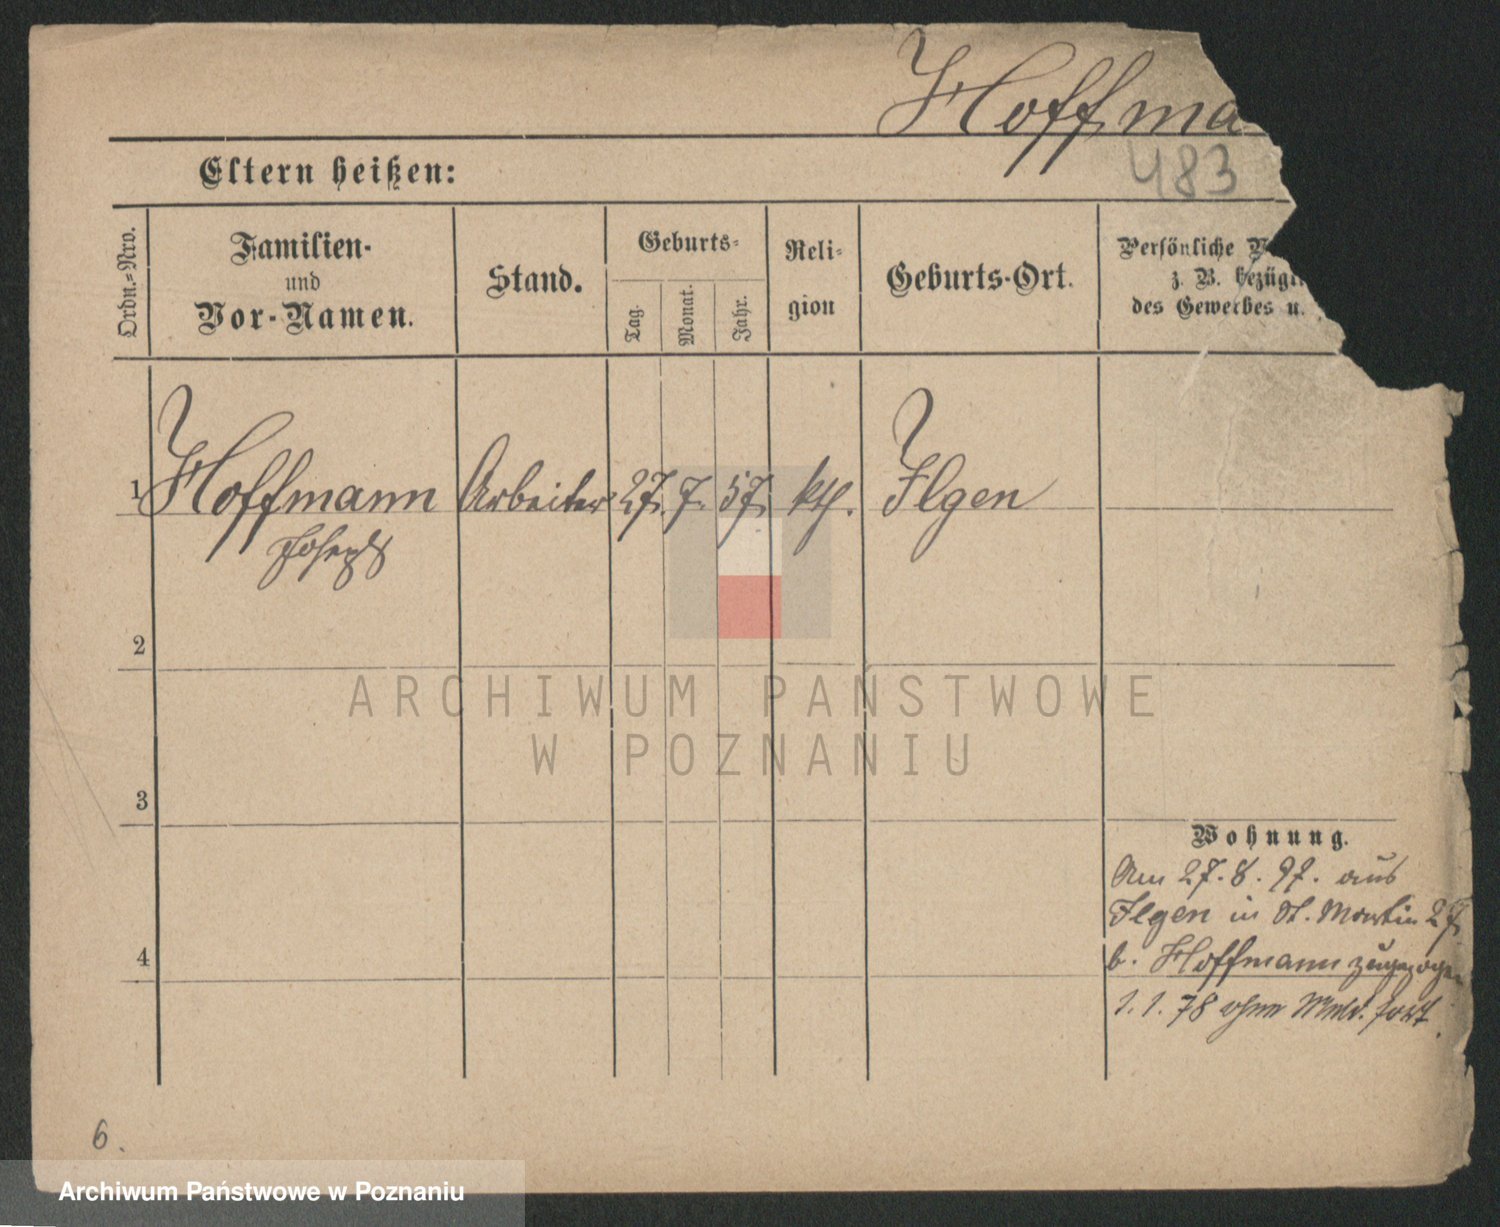 Hoffma
483
Eltern heißen:
Ordn.=Nro.
Familien-
und
Vor-Namen.
Stand.
Geburts-
Tag.
Monat.
Jahr.
Reli-
gion
Geburts-Ort.
Persönliche V
z. B. bezügl.
des Gewerbes u.
1 Hoffmann Arbeiter 27. 7. 57. kth. Ilgen
Joseph
2
3
4
Wohnung.
Am 27. 8. 97. aus
Ilgen in St. Martin 27
b. Hoffmann zugezogen
1. 1. 78 ohne Meld. fort.
6.
ARCHIWUM PAŃSTWOWE
W POZNANIU
Archiwum Państwowe w Poznaniu